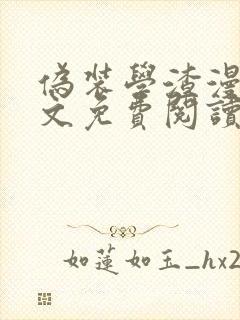 偽裝學渣漫
文免費閱讀
如蓮如玉_hx2